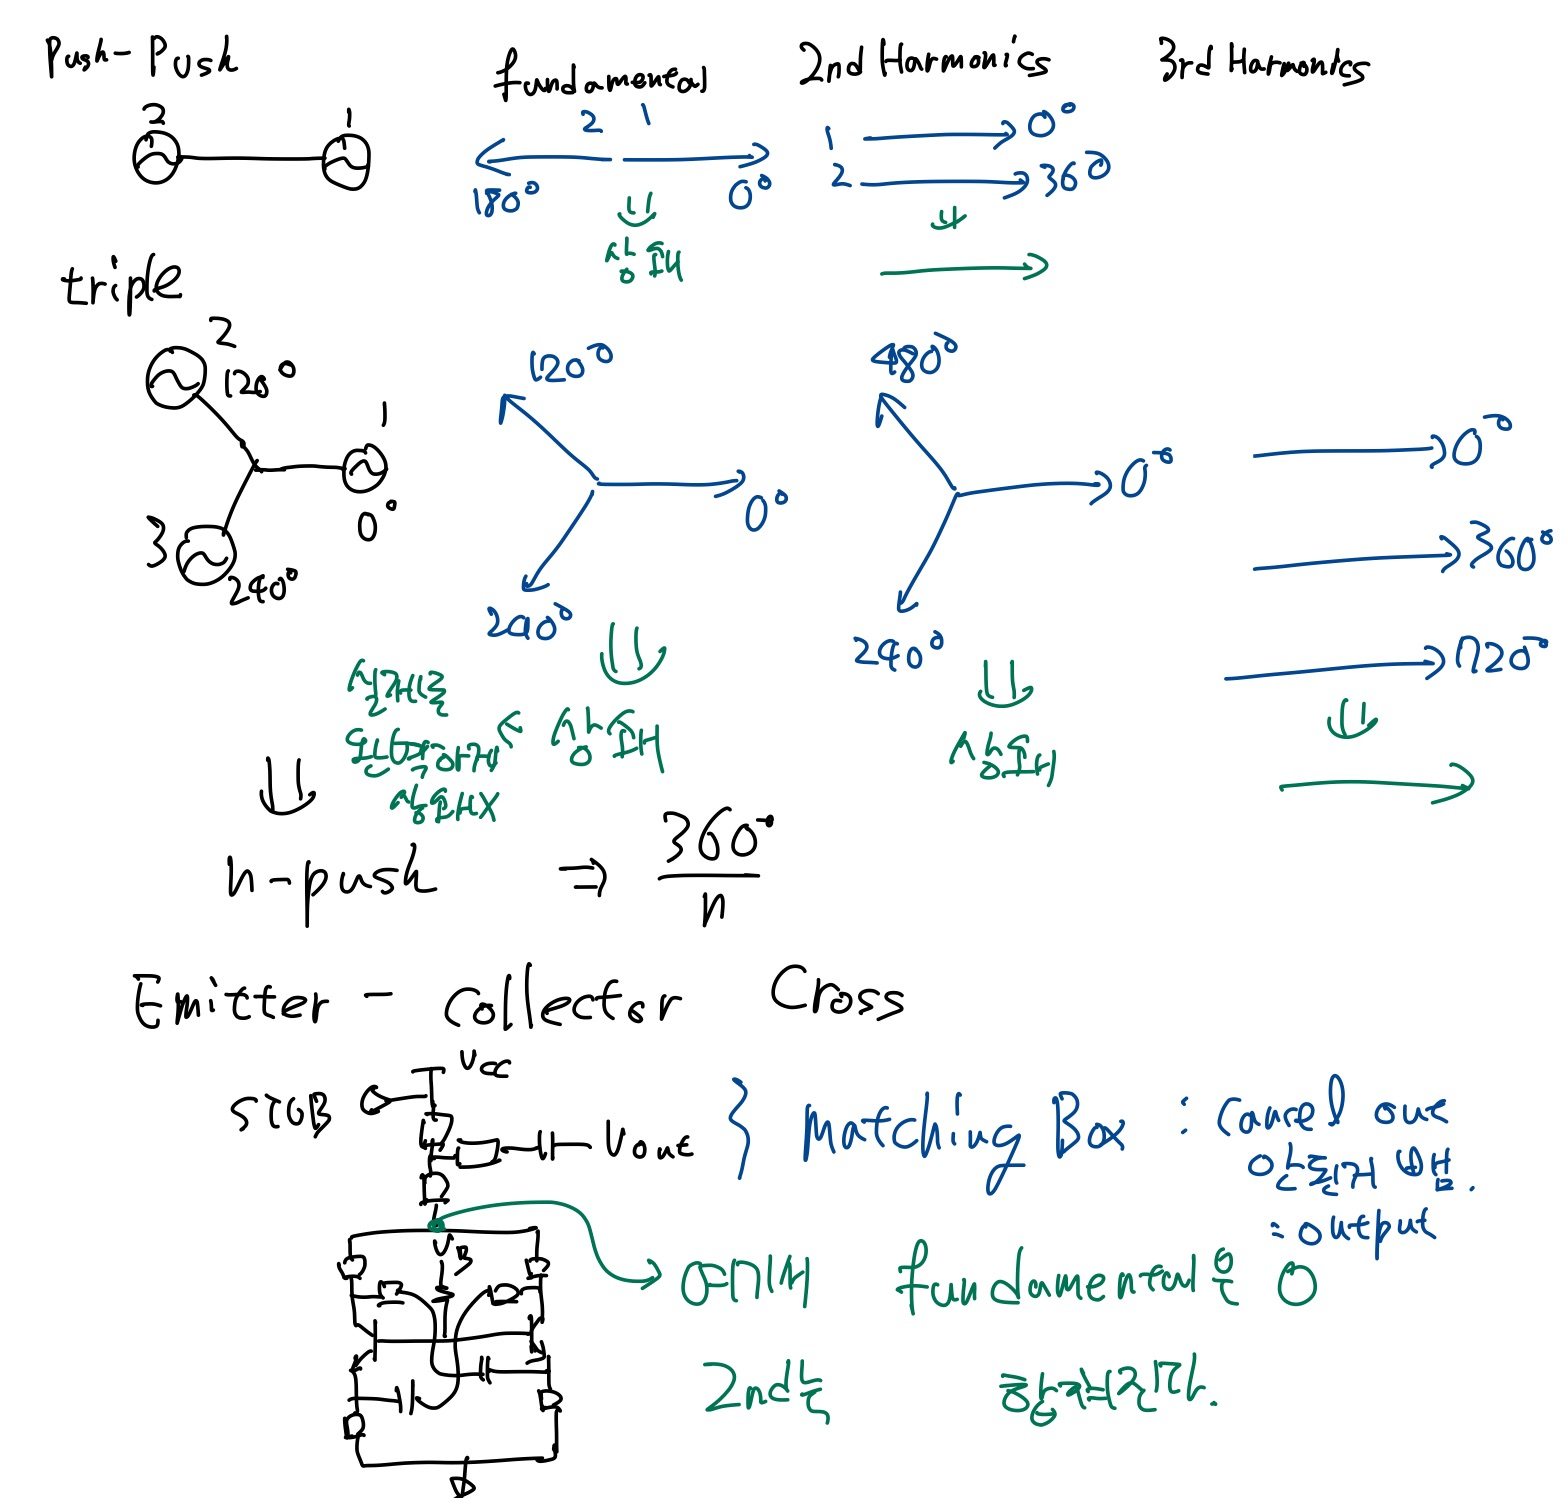 Push-Push
fundamental
2nd Harmonics
3rd Harmonics
2 1
2 1
180° 0°
1 0°
2 360°
상쇄
triple
2
120°
1
0°
3
240°
120°
0°
240°
480°
0°
240°
0°
360°
720°
실제론
완벽하게
상쇄X
상쇄
상쇄
n-push ⇒ 360°/n
Emitter - Collector Cross
Vcc
STUB
Vout
} Matching Box : Cancel out
안된거 뱀.
= output
VB
여기서 fundamental은 0
2nd는 합쳐진다.